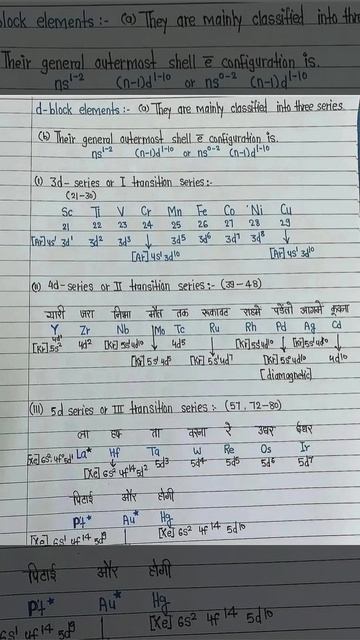 block elements :- (a) They are mainly classified into three
Their general outermost shell ē configuration is.
ns¹⁻² (n-1)d¹⁻¹⁰ or ns⁰⁻² (n-1)d¹⁻¹⁰
d-block elements :- (a) They are mainly classified into three series.
(b) Their general outermost shell ē configuration is.
ns¹⁻² (n-1)d¹⁻¹⁰ or ns⁰⁻² (n-1)d¹⁻¹⁰
(i) 3d-series or I transition series :-
(21-30)
Sc Ti V Cr Mn Fe Co Ni Cu
21 22 23 24 25 26 27 28 29
[Ar]4s² 3d¹ 3d² 3d³ ↓ 3d⁵ 3d⁶ 3d⁷ 3d⁸ ↓
[Ar]4s¹3d¹⁰ [Ar]4s¹3d¹⁰
(ii) 4d-series or II transition series :- (39-48)
जरा मौत तक रूकावट कूकना
Y Zr Nb Mo Tc Ru Rh Pd Ag Cd
[Kr]5s² 4d¹ 4d² 4d⁵
[Kr]5s¹4d⁵ [Kr]5s¹4d⁷ 4d¹⁰
[diamagnetic]
(iii) 5d series or III transition series :- (57, 72-80)
ला हफ ता वरना रे उधर ईधर
La* Hf Ta W Re Os Ir
5d³ 5d⁴ 5d⁵ 5d⁶ 5d⁷
[Xe]6s² 4f¹⁴ 5d²
पिटाई और होगी
Pt* Au* Hg
[Xe]6s¹ 4f¹⁴ 5d⁹ [Xe]6s² 4f¹⁴ 5d¹⁰
पिटाई और होगी
Pt* Au* Hg
6s¹ 4f¹⁴ 5d⁹ [Xe]6s² 4f¹⁴ 5d¹⁰